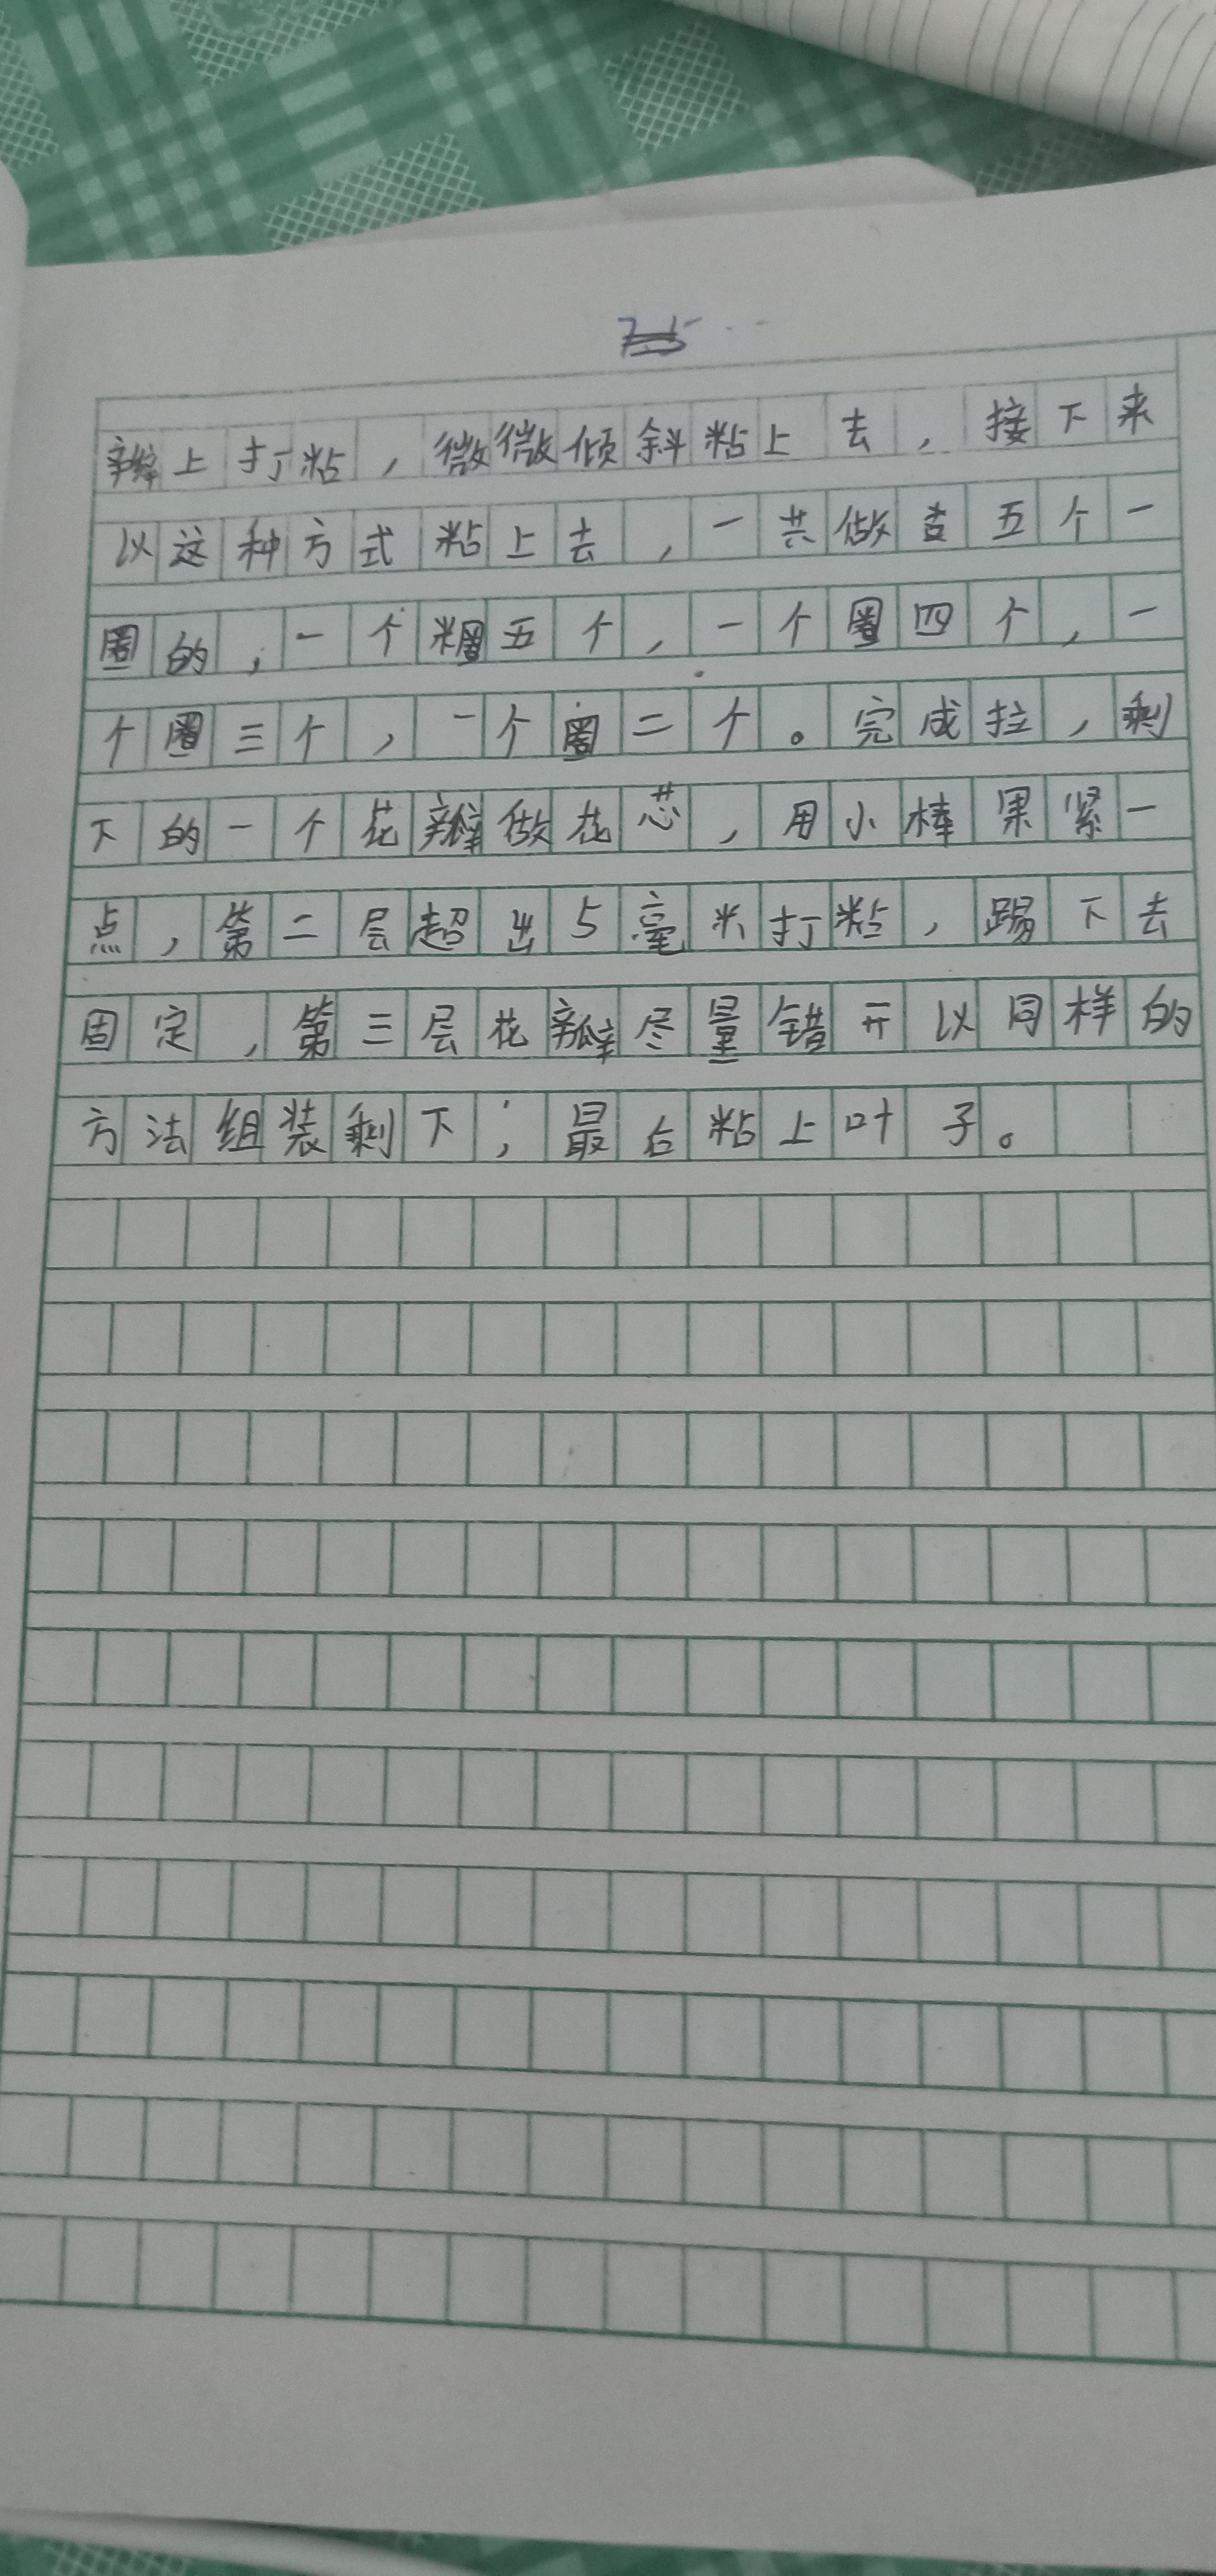 75
瓣上打粘，微微倾斜粘上去，接下来
以这种方式粘上去，一共做査五个一
圈的，一个糰五个，一个圈四个，一
个圈三个，一个圈二个。完成拉，剩
下的一个花瓣做花芯，用小棒果紧一
点，第二层超出5毫米打粘，踢下去
固定，第三层花瓣尽量错开以同样的
方法组装剩下，最后粘上叶子。